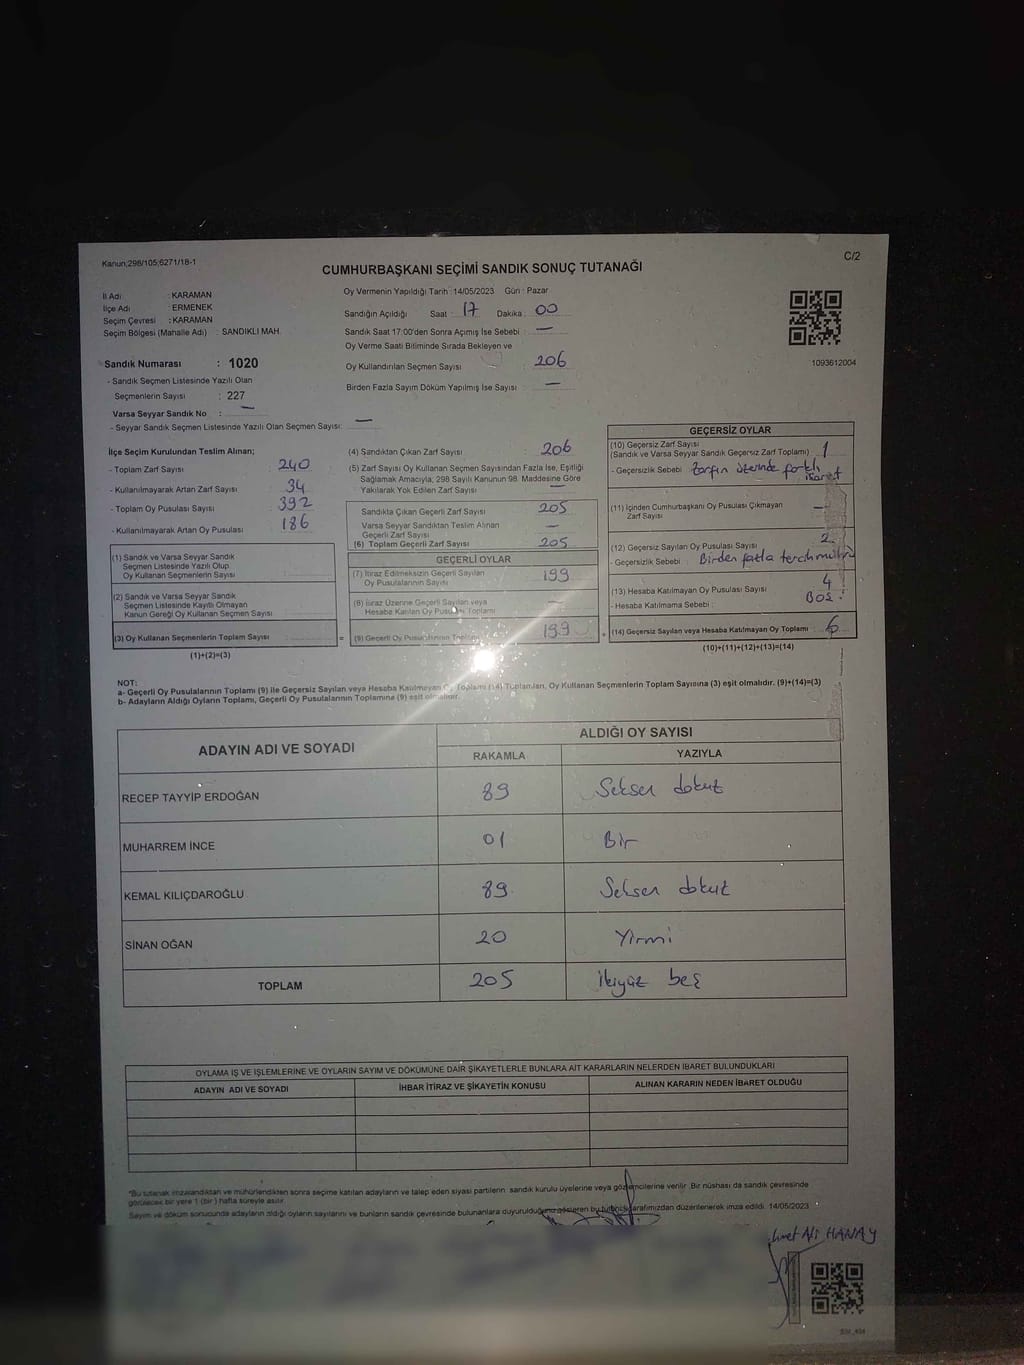 Kanun;298/105;6271/18-1
C/2
CUMHURBAŞKANI SEÇİMİ SANDIK SONUÇ TUTANAĞI
İl Adı : KARAMAN
İlçe Adı : ERMENEK
Seçim Çevresi : KARAMAN
Seçim Bölgesi (Mahalle Adı) : SANDIKLI MAH.
Sandık Numarası : 1020
- Sandık Seçmen Listesinde Yazılı Olan
Seçmenlerin Sayısı : 227
Varsa Seyyar Sandık No : —
- Seyyar Sandık Seçmen Listesinde Yazılı Olan Seçmen Sayısı: —
Oy Vermenin Yapıldığı Tarih : 14/05/2023 Gün : Pazar
Sandığın Açıldığı Saat : 17 Dakika : 00
Sandık Saat 17:00'den Sonra Açılmış İse Sebebi : —
Oy Verme Saati Bitiminde Sırada Bekleyen ve
Oy Kullandırılan Seçmen Sayısı : 206
Birden Fazla Sayım Döküm Yapılmış İse Sayısı : —
1093612004
İlçe Seçim Kurulundan Teslim Alınan;
- Toplam Zarf Sayısı : 240
- Kullanılmayarak Artan Zarf Sayısı : 34
- Toplam Oy Pusulası Sayısı : 392
- Kullanılmayarak Artan Oy Pusulası : 186
(1) Sandık ve Varsa Seyyar Sandık
Seçmen Listesinde Yazılı Olup
Oy Kullanan Seçmenlerin Sayısı
(2) Sandık ve Varsa Seyyar Sandık
Seçmen Listesinde Kayıtlı Olmayan
Kanun Gereği Oy Kullanan Seçmen Sayısı
(3) Oy Kullanan Seçmenlerin Toplam Sayısı
(1)+(2)=(3)
(4) Sandıktan Çıkan Zarf Sayısı : 206
(5) Zarf Sayısı Oy Kullanan Seçmen Sayısından Fazla İse, Eşitliği
Sağlamak Amacıyla; 298 Sayılı Kanunun 98. Maddesine Göre
Yakılarak Yok Edilen Zarf Sayısı : —
Sandıkta Çıkan Geçerli Zarf Sayısı : 205
Varsa Seyyar Sandıktan Teslim Alınan
Geçerli Zarf Sayısı : —
(6) Toplam Geçerli Zarf Sayısı : 205
GEÇERLİ OYLAR
(7) İtiraz Edilmeksizin Geçerli Sayılan
Oy Pusulalarının Sayısı : 199
(8) İtiraz Üzerine Geçerli Sayılan veya
Hesaba Katılan Oy Pusulası Toplamı —
(9) Geçerli Oy Pusulalarının Toplamı 199
GEÇERSİZ OYLAR
(10) Geçersiz Zarf Sayısı
(Sandık ve Varsa Seyyar Sandık Geçersiz Zarf Toplamı) : 1
- Geçersizlik Sebebi : Zarfın üzerinde farklı
işaret
(11) İçinden Cumhurbaşkanı Oy Pusulası Çıkmayan
Zarf Sayısı : —
(12) Geçersiz Sayılan Oy Pusulası Sayısı : 2
- Geçersizlik Sebebi : Birden fazla tercih mührü
(13) Hesaba Katılmayan Oy Pusulası Sayısı : 4
- Hesaba Katılmama Sebebi : BOŞ
(14) Geçersiz Sayılan veya Hesaba Katılmayan Oy Toplamı : 6
(10)+(11)+(12)+(13)=(14)
NOT:
a- Geçerli Oy Pusulalarının Toplamı (9) ile Geçersiz Sayılan veya Hesaba Katılmayan Oy Toplamı (14) Toplamları, Oy Kullanan Seçmenlerin Toplam Sayısına (3) eşit olmalıdır. (9)+(14)=(3)
b- Adayların Aldığı Oyların Toplamı, Geçerli Oy Pusulalarının Toplamına (9) eşit olmalıdır.
ADAYIN ADI VE SOYADI
ALDIĞI OY SAYISI
RAKAMLA YAZIYLA
RECEP TAYYİP ERDOĞAN 89 Seksen dokuz
MUHARREM İNCE 01 Bir
KEMAL KILIÇDAROĞLU 89 Seksen dokuz
SİNAN OĞAN 20 Yirmi
TOPLAM 205 İkiyüz beş
OYLAMA İŞ VE İŞLEMLERİNE VE OYLARIN SAYIM VE DÖKÜMÜNE DAİR ŞİKAYETLERLE BUNLARA AİT KARARLARIN NELERDEN İBARET BULUNDUKLARI
ADAYIN ADI VE SOYADI İHBAR İTİRAZ VE ŞİKAYETİN KONUSU ALINAN KARARIN NEDEN İBARET OLDUĞU
*Bu tutanak imzalandıktan ve mühürlendikten sonra seçime katılan adayların ve talep eden siyasi partilerin sandık kurulu üyelerine veya gözlemcilerine verilir. Bir nüshası da sandık çevresinde
görülecek bir yere 1 (bir) hafta süreyle asılır.
Sayım ve döküm sonucunda adayların aldığı oyların sayılarını ve bunların sandık çevresinde bulunanlara duyurulduğunu gösteren bu tutanak tarafımızdan düzenlenerek imza edildi. 14/05/2023
Ali HANAY